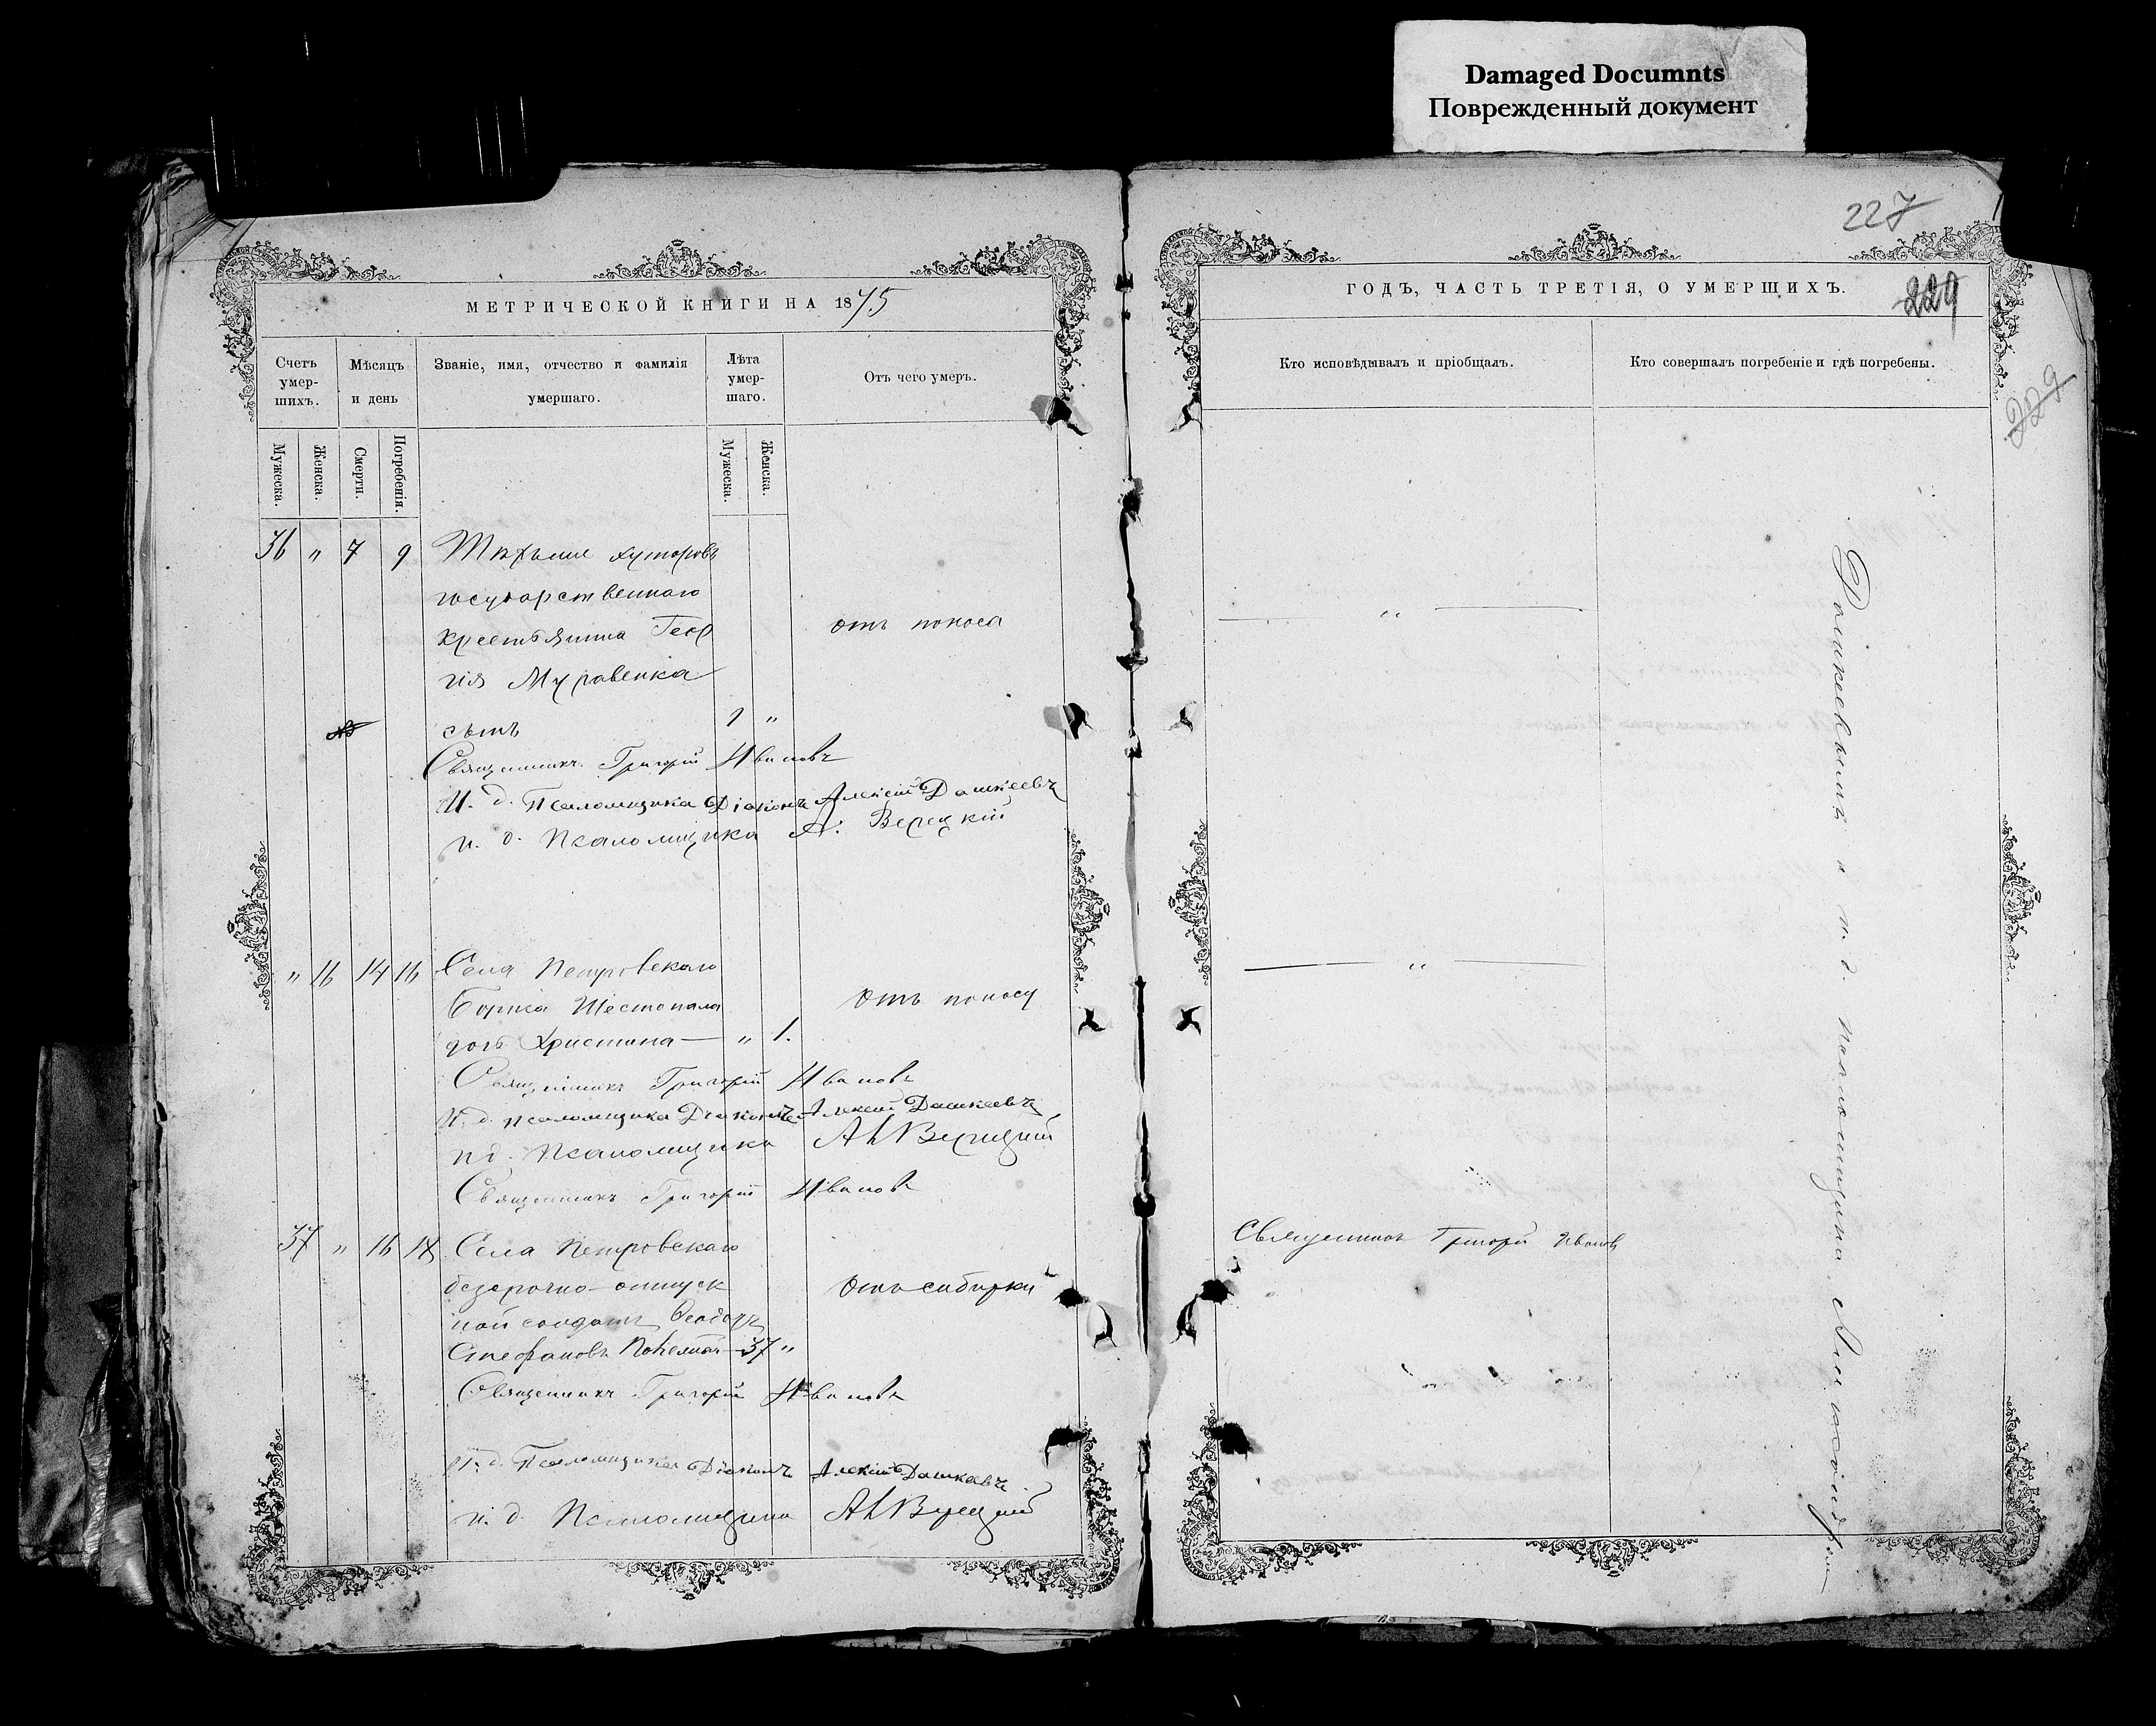 Damaged Documnts
Поврежденный документ
МЕТРИЧЕСКОЙ КНИГИ НА 1875
Счетъ умер-шихъ.
Мѣсяцъ и день
Званіе, имя, отчество и фамилія умершаго.
Лѣта умер-шаго.
Отъ чего умеръ.
Мужеска.
Женска.
Смерти.
Погребенія.
Мужеска.
Женска.
36 " 7 9 хуторовъ
государственнаго
крестьянина Геор
гія Муравенка
сынъ 1 "
отъ поноса
Священникъ Григорій Ивановъ
И. д. Псаломщика Діаконъ Алексій Дашкеевъ
и. д. Псаломщика А. Верецкій
" 16 14 16 Села Петровскаго
Бориса Шестопала
дочь Христина — " 1.
отъ поносу
Священникъ Григорій Ивановъ
И. д. псаломщика Діаконъ Алексій Дашкеевъ
и д. Псаломщика Верецкій
Священникъ Григорій Ивановъ
37 " 16 18 Села Петровскаго
безсрочно-отпуск
ной солдатъ Ѳеодоръ
Стефановъ 37 "
отъ сибирки
Священникъ Григорій Ивановъ
И. д. Псаломщика Діаконъ Алексій Дашкеевъ
и. д. Псаломщика Верецкій
227
ГОДЪ, ЧАСТЬ ТРЕТІЯ, О УМЕРШИХЪ.
229
229
Кто исповѣдывалъ и пріобщалъ.
Кто совершалъ погребеніе и гдѣ погребены.
— " —
— " —
Священникъ Григорій Ивановъ
и. д. псаломщика